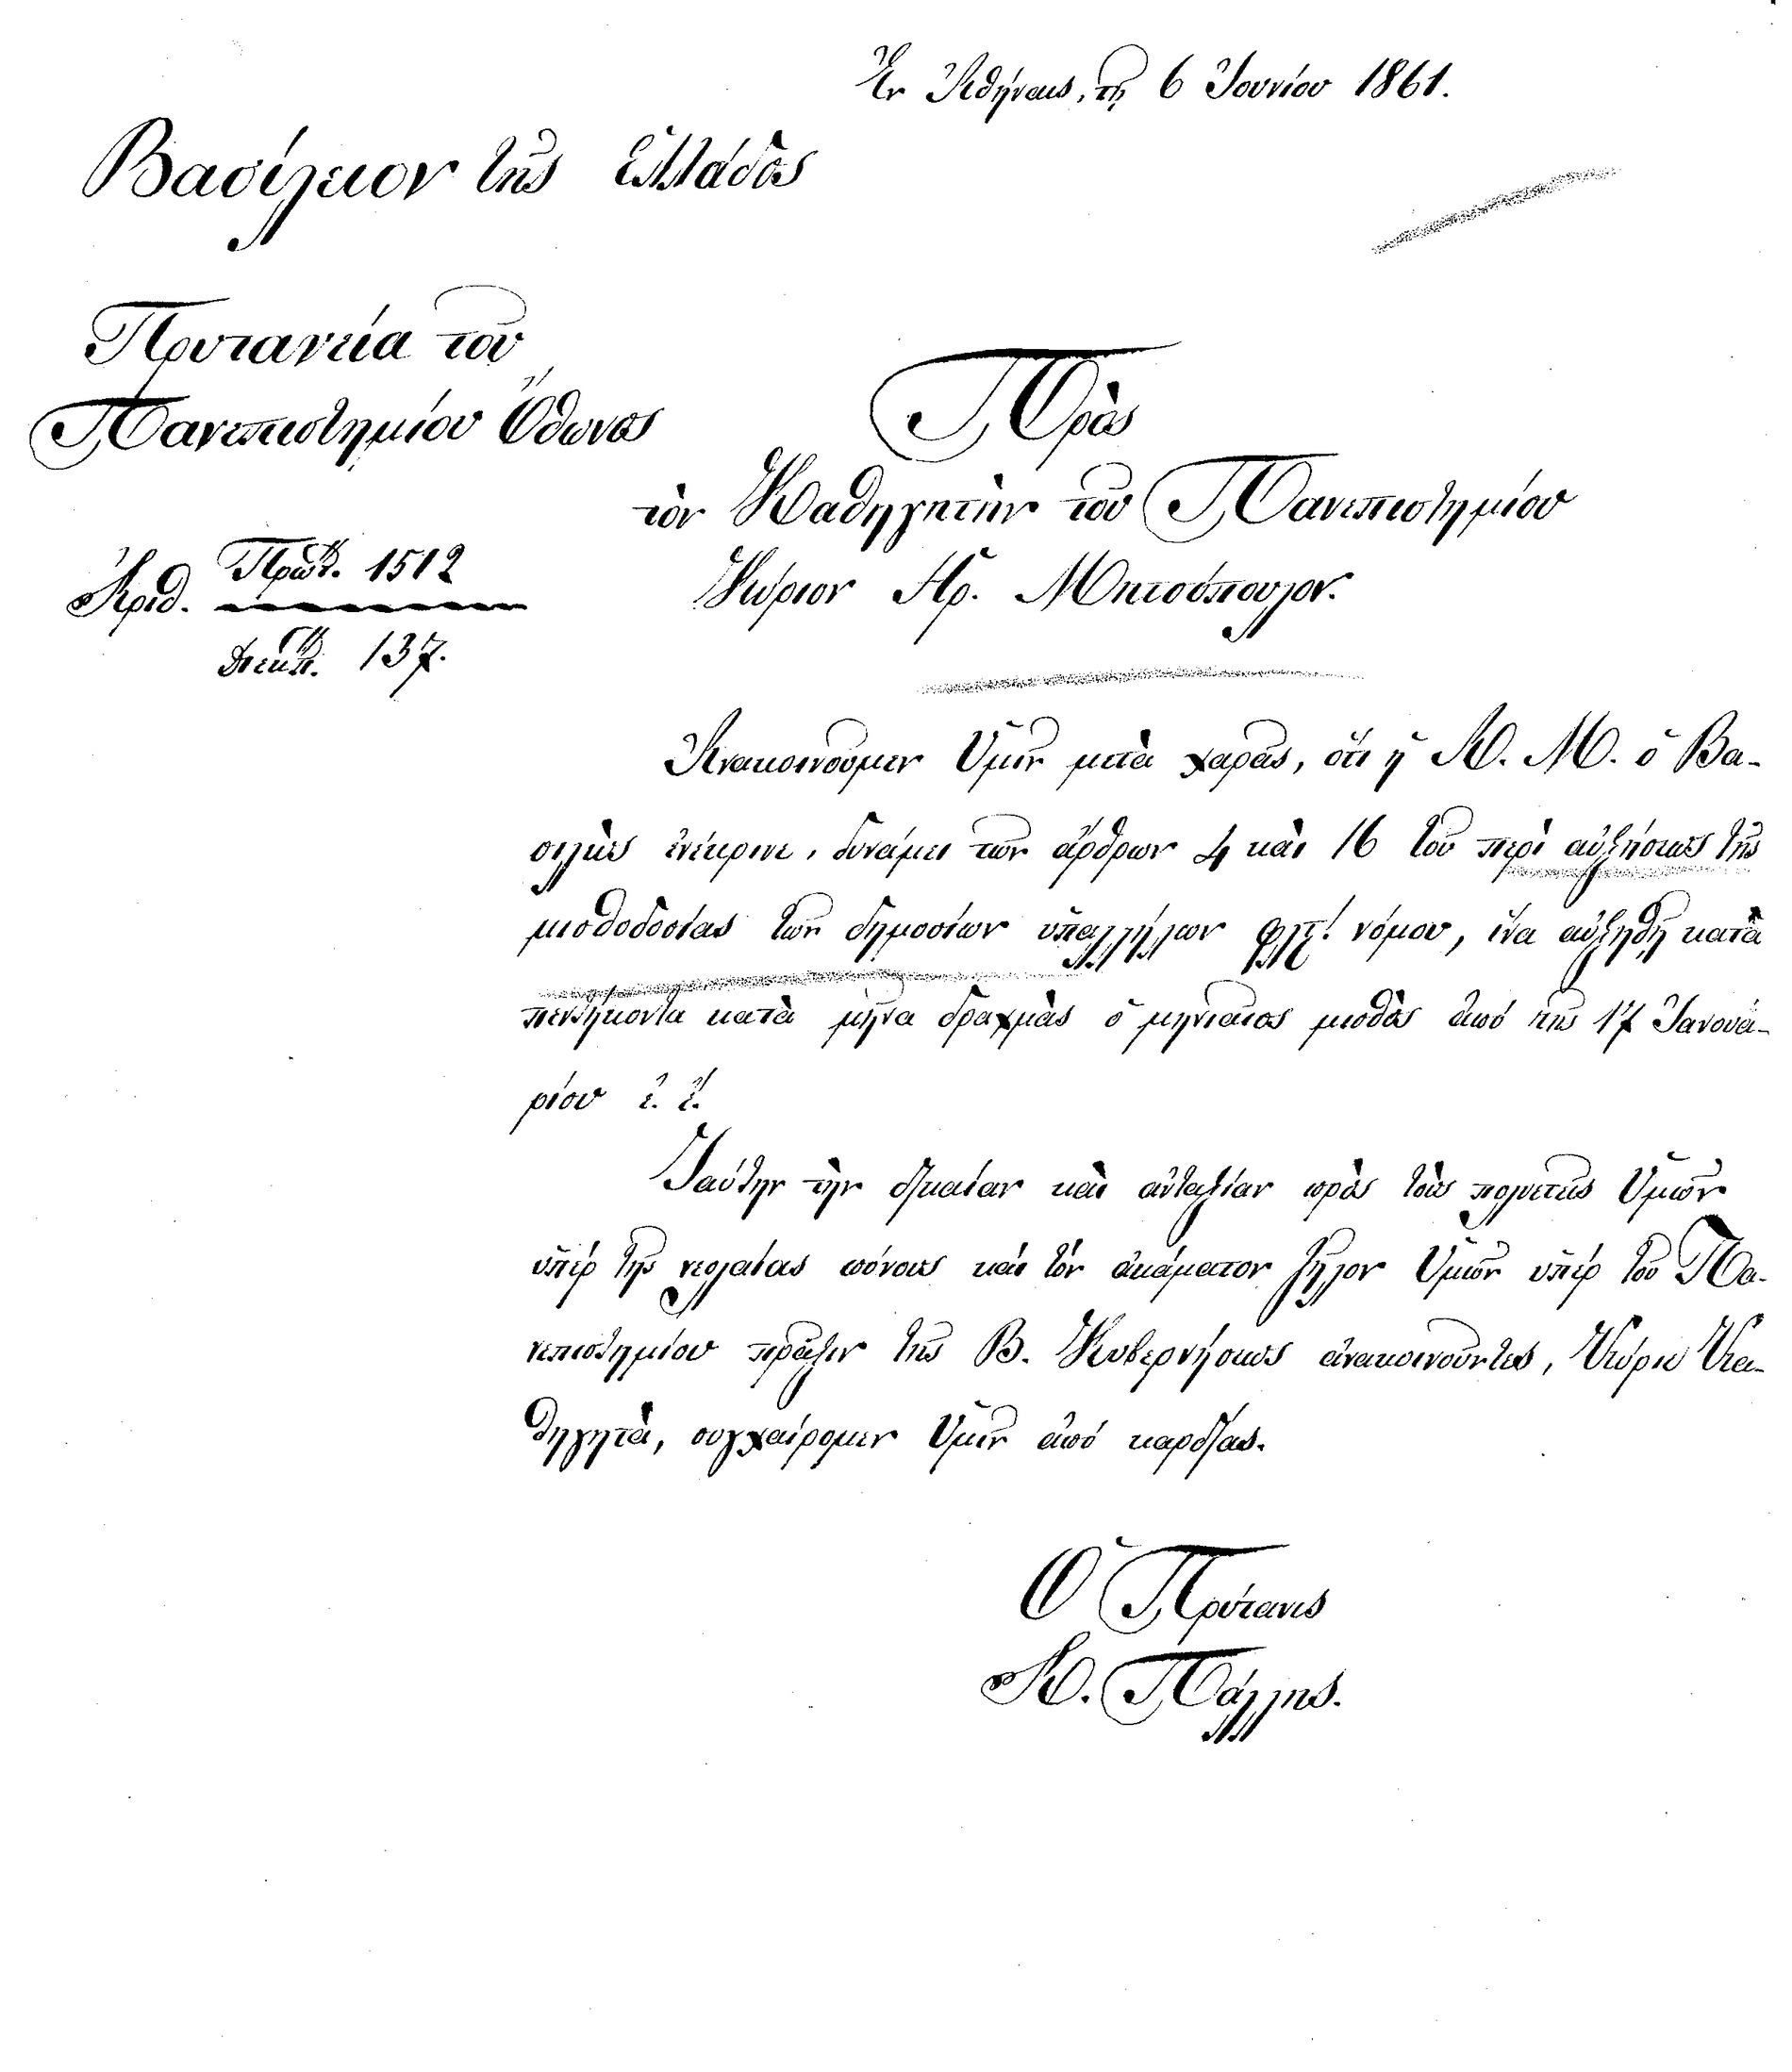 Ἐν Ἀθήναις, τῇ 6 Ἰουνίου 1861.
Βασίλειον τῆς Ἑλλάδος
Πρυτανεία τοῦ
Πανεπιστημίου Ὄθωνος
Πρὸς
τὸν Καθηγητὴν τοῦ Πανεπιστημίου
Κύριον Ἡρ. Μητσόπουλον.
Ἀριθ. Πρωτ. 1512
Διεκπ. 137.
Ἀνακοινοῦμεν Ὑμῖν μετὰ χαρᾶς, ὅτι ἡ Α. Μ. ὁ Βα-
σιλεὺς ἐνέκρινε, δυνάμει τῶν ἄρθρων 4 καὶ 16 τοῦ περὶ αὐξήσεως τῆς
μισθοδοσίας τῶν δημοσίων ὑπαλλήλων φλζ΄. νόμου, ἵνα αὐξηθῇ κατὰ
πεντήκοντα κατὰ μῆνα δραχμὰς ὁ μηνιαῖος μισθὸς ἀπὸ τῆς 17 Ἰανουα-
ρίου ἐ. ἔ.
Ταύτην τὴν δικαίαν καὶ ἀνταξίαν πρὸς τοὺς πολυετεῖς Ὑμῶν
ὑπὲρ τῆς νεολαίας πόνους καὶ τὸν ἀκάματον ζῆλον Ὑμῶν ὑπὲρ τοῦ Πα-
νεπιστημίου πρᾶξιν τῆς Β. Κυβερνήσεως ἀνακοινοῦντες, Κύριε Κα-
θηγητὰ, συγχαίρομεν Ὑμῖν ἀπὸ καρδίας.
Ὁ Πρύτανις
Α. Πάλλης.